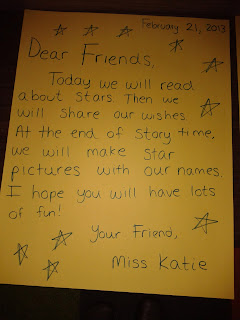 February 21, 2013
Dear Friends,
Today we will read
about stars. Then we
will share our wishes
At the end of story time,
we will make star
pictures with our names.
I hope you will have lots
of fun!
Your Friend,
Miss Katie